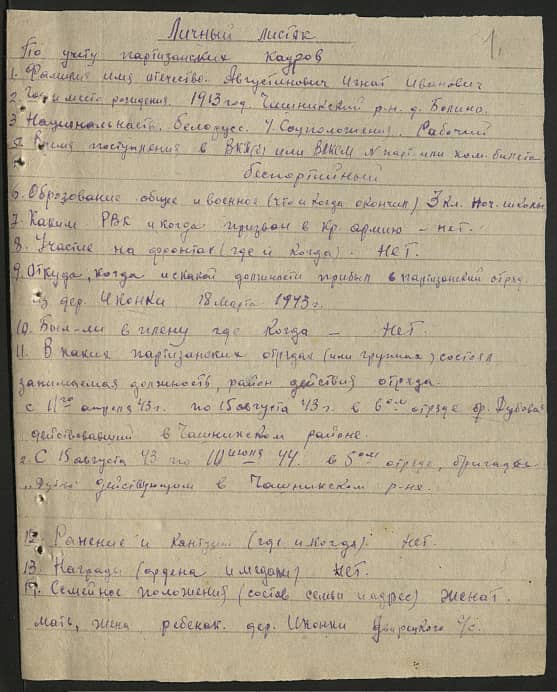 Личный листок
1.
По учету партизанских кадров
1. Фамилия имя отечество. Августинович Игнат Иванович
2. Год и место рождения. 1913 год. Чашникский р-н. д. Белина.
3. Национальность. белорусс. 4. Соцположения. Рабочий
5. Время поступления в ВКП(б) или ВЛКСМ N парт. или ком. билета
беспортийный
6. Образование общее и военное (что и когда окончил) 3 кл. нач. школы
7. Каким РВК и когда призван в Кр. армию – нет.
8. Участие на фронтах (где и когда). Нет.
9. Откуда, когда и с какой должности прибыл в партизанский отряд.
из дер. Иконки 18 марта 1943 г.
10. Был-ли в плену где когда – Нет.
11. В каких партизанских отрядах (или группах) состоял
занимаемая должность, район действия отряда.
с 11го апреля 43 г. по 15 августа 43 г. в 6ом отряде бр. Дубова
действовавший в Чашникском районе.
2. С 15 августа 43 по июня 44. в 5ом отряде, бригады
действующом в Чашникском р-не.
12. Ранение и кантузии (где и когда). Нет.
13. Награды (ордена и медали) Нет.
14. Семейное положения (состав семьи и адрес) женат.
мать, жена ребенак. дер. Иконки с/с.